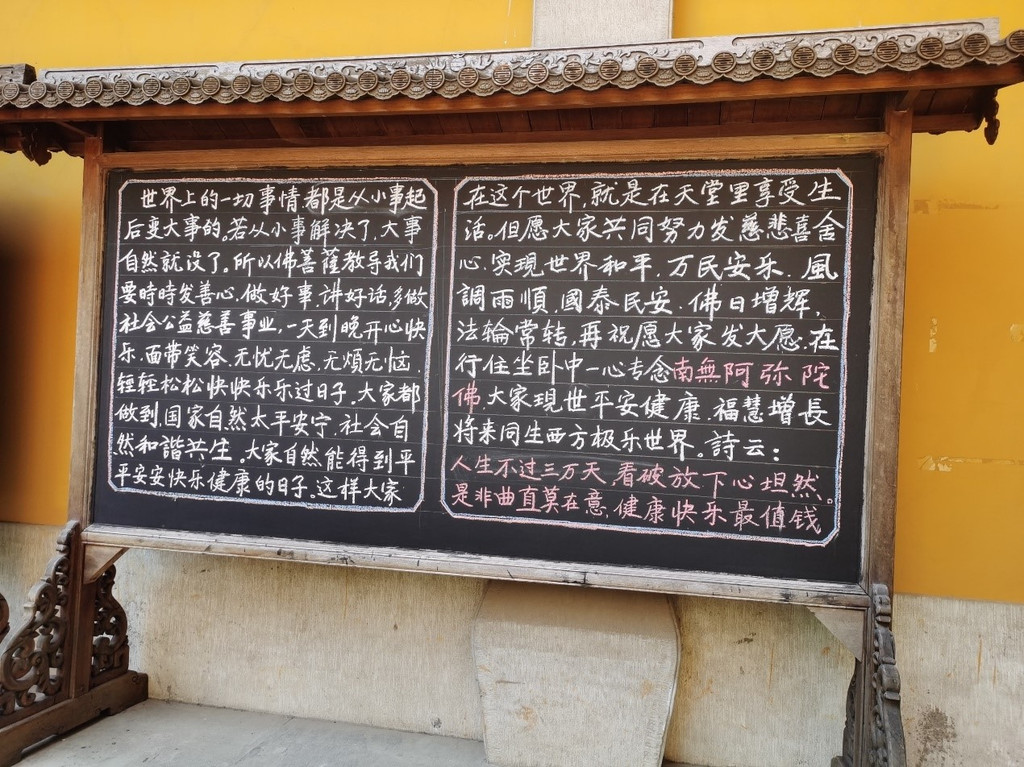 世界上的一切事情都是从小事起
后变大事的。若从小事解决了，大事
自然就没了。所以佛菩薩教导我们
要時時发善心，做好事，讲好话，多做
社会公益慈善事业，一天到晚开心快
乐，面带笑容，无忧无虑，无煩无恼，
轻轻松松快快乐乐过日子，大家都
做到，国家自然太平安宁，社会自
然和諧共生，大家自然能得到平
平安安快乐健康的日子。这样大家
在这个世界，就是在天堂里享受生
活。但愿大家共同努力发慈悲喜舍
心，实現世界和平，万民安乐，風
調雨順，國泰民安，佛日增辉，
法輪常转，再祝愿大家发大愿，在
行住坐卧中一心专念南無阿弥陀
佛，大家現世平安健康，福慧增長
将来同生西方极乐世界。詩云：
人生不过三万天，看破放下心坦然。
是非曲直莫在意，健康快乐最值钱